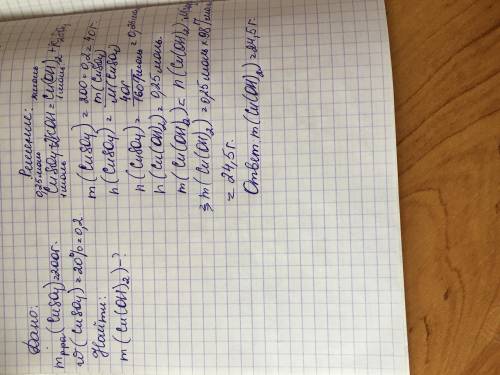 Дано:
m р-ра (CuSO4)=200г.
ω (CuSO4)=20%=0,2
Найти:
m (Cu(OH)2)-?
Решение:
0,25 моль x моль
CuSO4+2KOH=Cu(OH)2+K2SO4
1 моль 1 моль
m (CuSO4)=200·0,2=40г.
n (CuSO4)= m(CuSO4)
M(CuSO4)
n (CuSO4)= 40г
160г/моль =0,25моль
n (Cu(OH)2)=0,25 моль.
m (Cu(OH)2)=n(Cu(OH)2)
m (Cu(OH)2)=0,25 моль×98г/моль
=24,5г.
Ответ: m (Cu(OH)2)=24,5г.